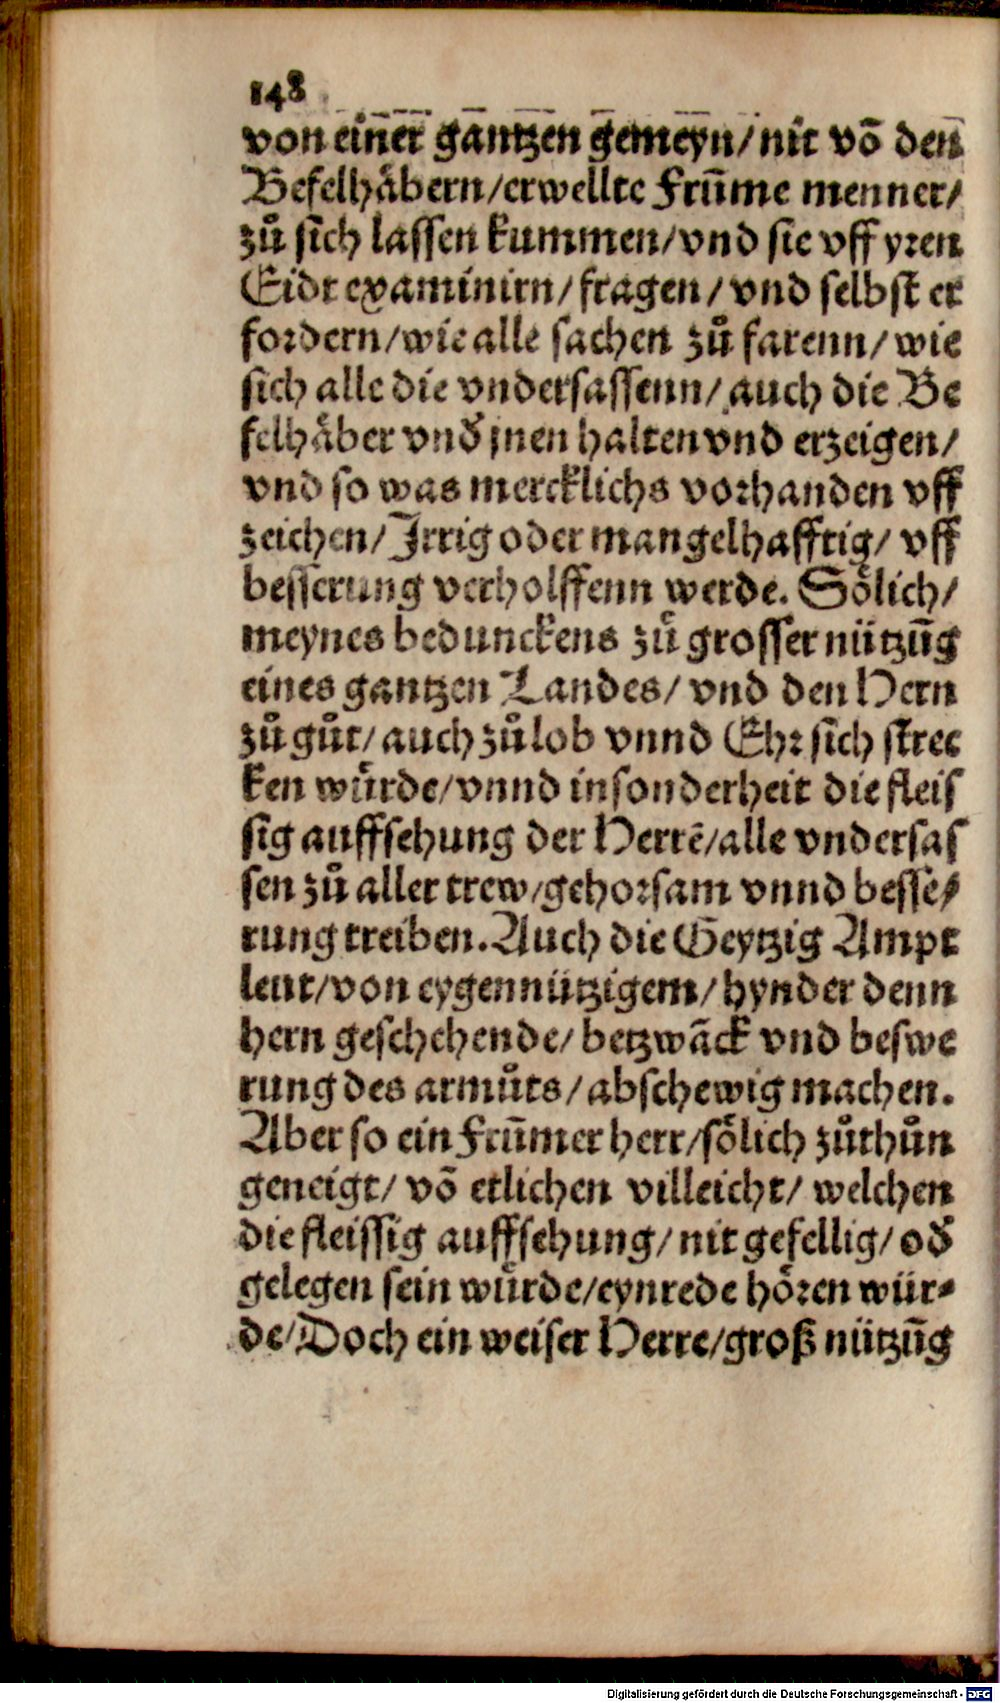 148
von einer gantzen gemeyn/nit võ den
Befelhåbern/erwellte Frũme menner/
zů sich lassen kummen/vnd sie vff yren
Eidt examinirn/fragen/vnd selbst er
fordern/wie alle sachen zů farenn/wie
sich alle die vndersassenn/auch die Be
felhåber vnd̃ jnen halten vnd erzeigen/
vnd so was mercklichs vorhanden vff
zeichen/Irrig oder mangelhafftig/vff
besserung verholffenn werde. Sölich/
meynes beduncken​s zů grosser nützũg
eines gantzen Landes/vnd den Hern
zů gůt/auch zů lob vnnd Ehr sich strec
ken würde/vnnd insonderheit die fleis
sig auffsehung der Herrẽ/alle vndersas
sen zů aller trew/gehorsam vnnd besse/
rung treiben. Auch die Geytzig Ampt
leut/von eygennützigem/hynder denn
hern geschehende/betzwãck vnd beswe
rung des armůts/abschewig machen.
Aber so ein Frũmer herr/sölich zůthůn
geneigt/võ etlichen villeicht/welchen
die fleissig auffsehung/nit gefellig/od̃
gelegen sein würde/eynrede hören wür-
de/Doch ein weiser Herre/groß nützũg
Digitalisierung gefördert durch die Deutsche Forschungsgemeinschaft - DFG